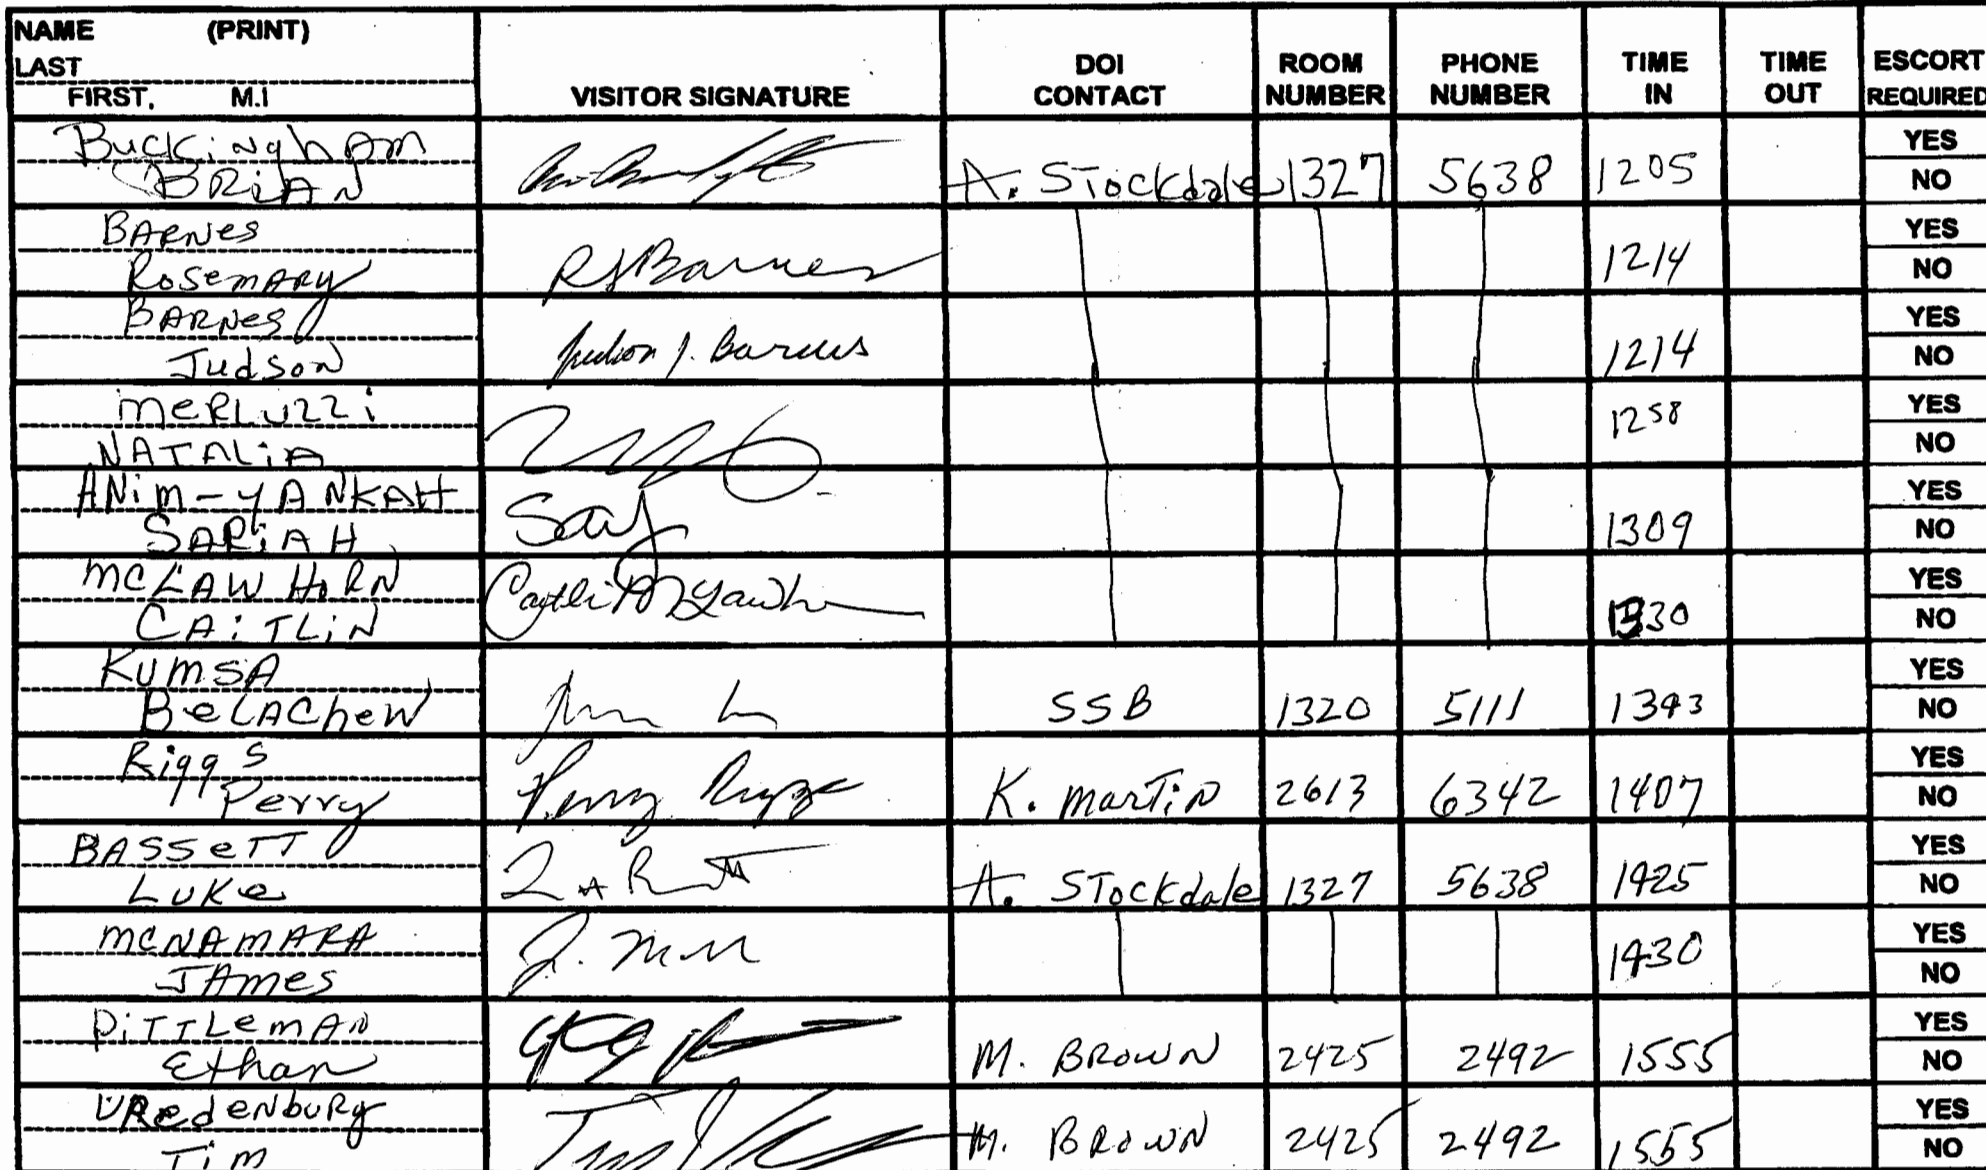 NAME (PRINT)
LAST
FIRST, M.I
VISITOR SIGNATURE
DOI CONTACT
ROOM NUMBER
PHONE NUMBER
TIME IN
TIME OUT
ESCORT REQUIRED
Buckingham
BRIAN
A. Stockdale 1327 5638 1205
YES
NO
BARNes
Rosemary
RJBarnes
1214
YES
NO
BARNes
Judson
Judson J. Barnes
1214
YES
NO
MeRLuzzi
NATALiA
1258
YES
NO
ANiM-YANKAH
SARiAH
1309
YES
NO
McLAWHoRN
CAiTLiN
1330
YES
NO
KumSA
BeLAChew
SSB 1320 5111 1343
YES
NO
Riggs
Perry
Perry Riggs
K. MarTiN 2613 6342 1407
YES
NO
BASSeTT
LuKe
A. STockdale 1327 5638 1425
YES
NO
McNAMARA
JAmes
1430
YES
NO
PiTTLemAN
Ethan
M. BROWN 2425 2492 1555
YES
NO
VRedenbuRg
Tim
M. BROWN 2425 2492 1555
YES
NO